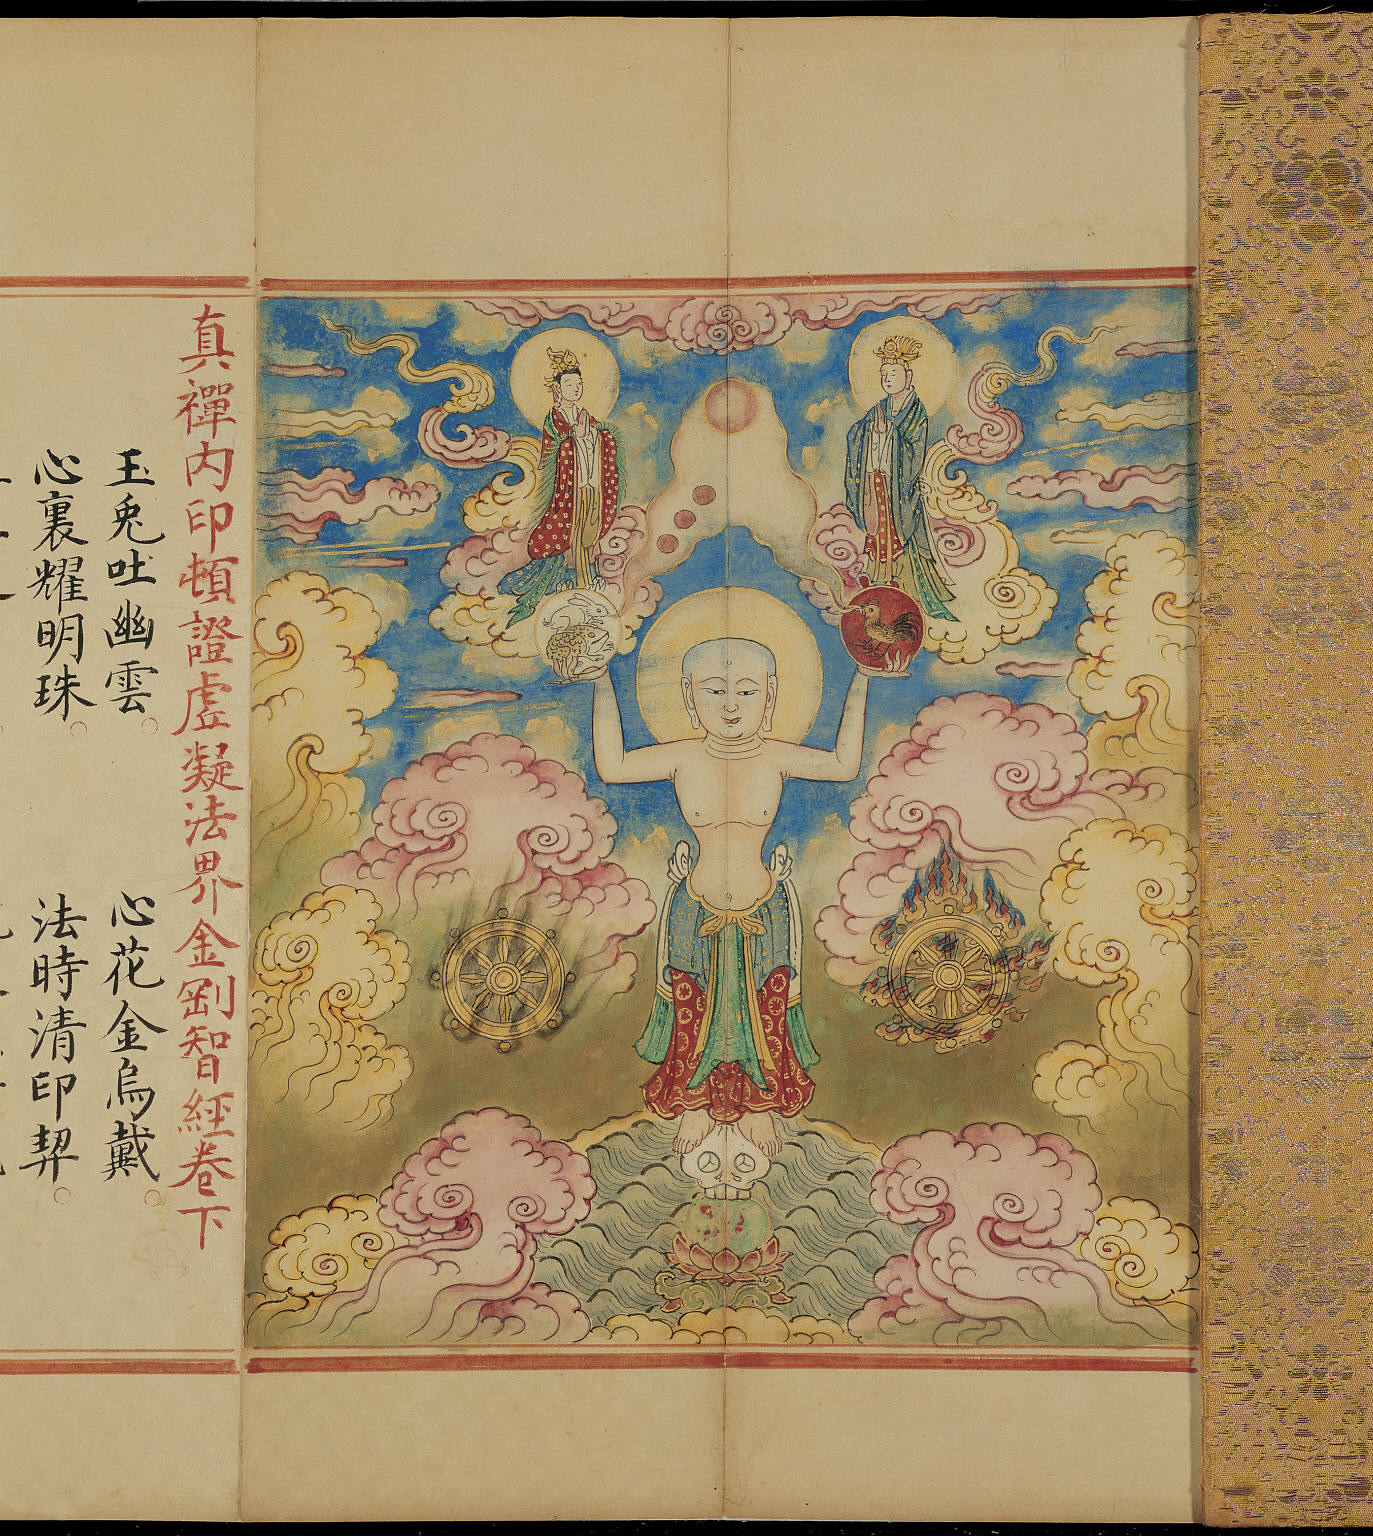 真禪內印頓證虛凝法界金剛智經卷下
玉兔吐幽雲 心花金烏戴
心裏耀明珠 法時清印契